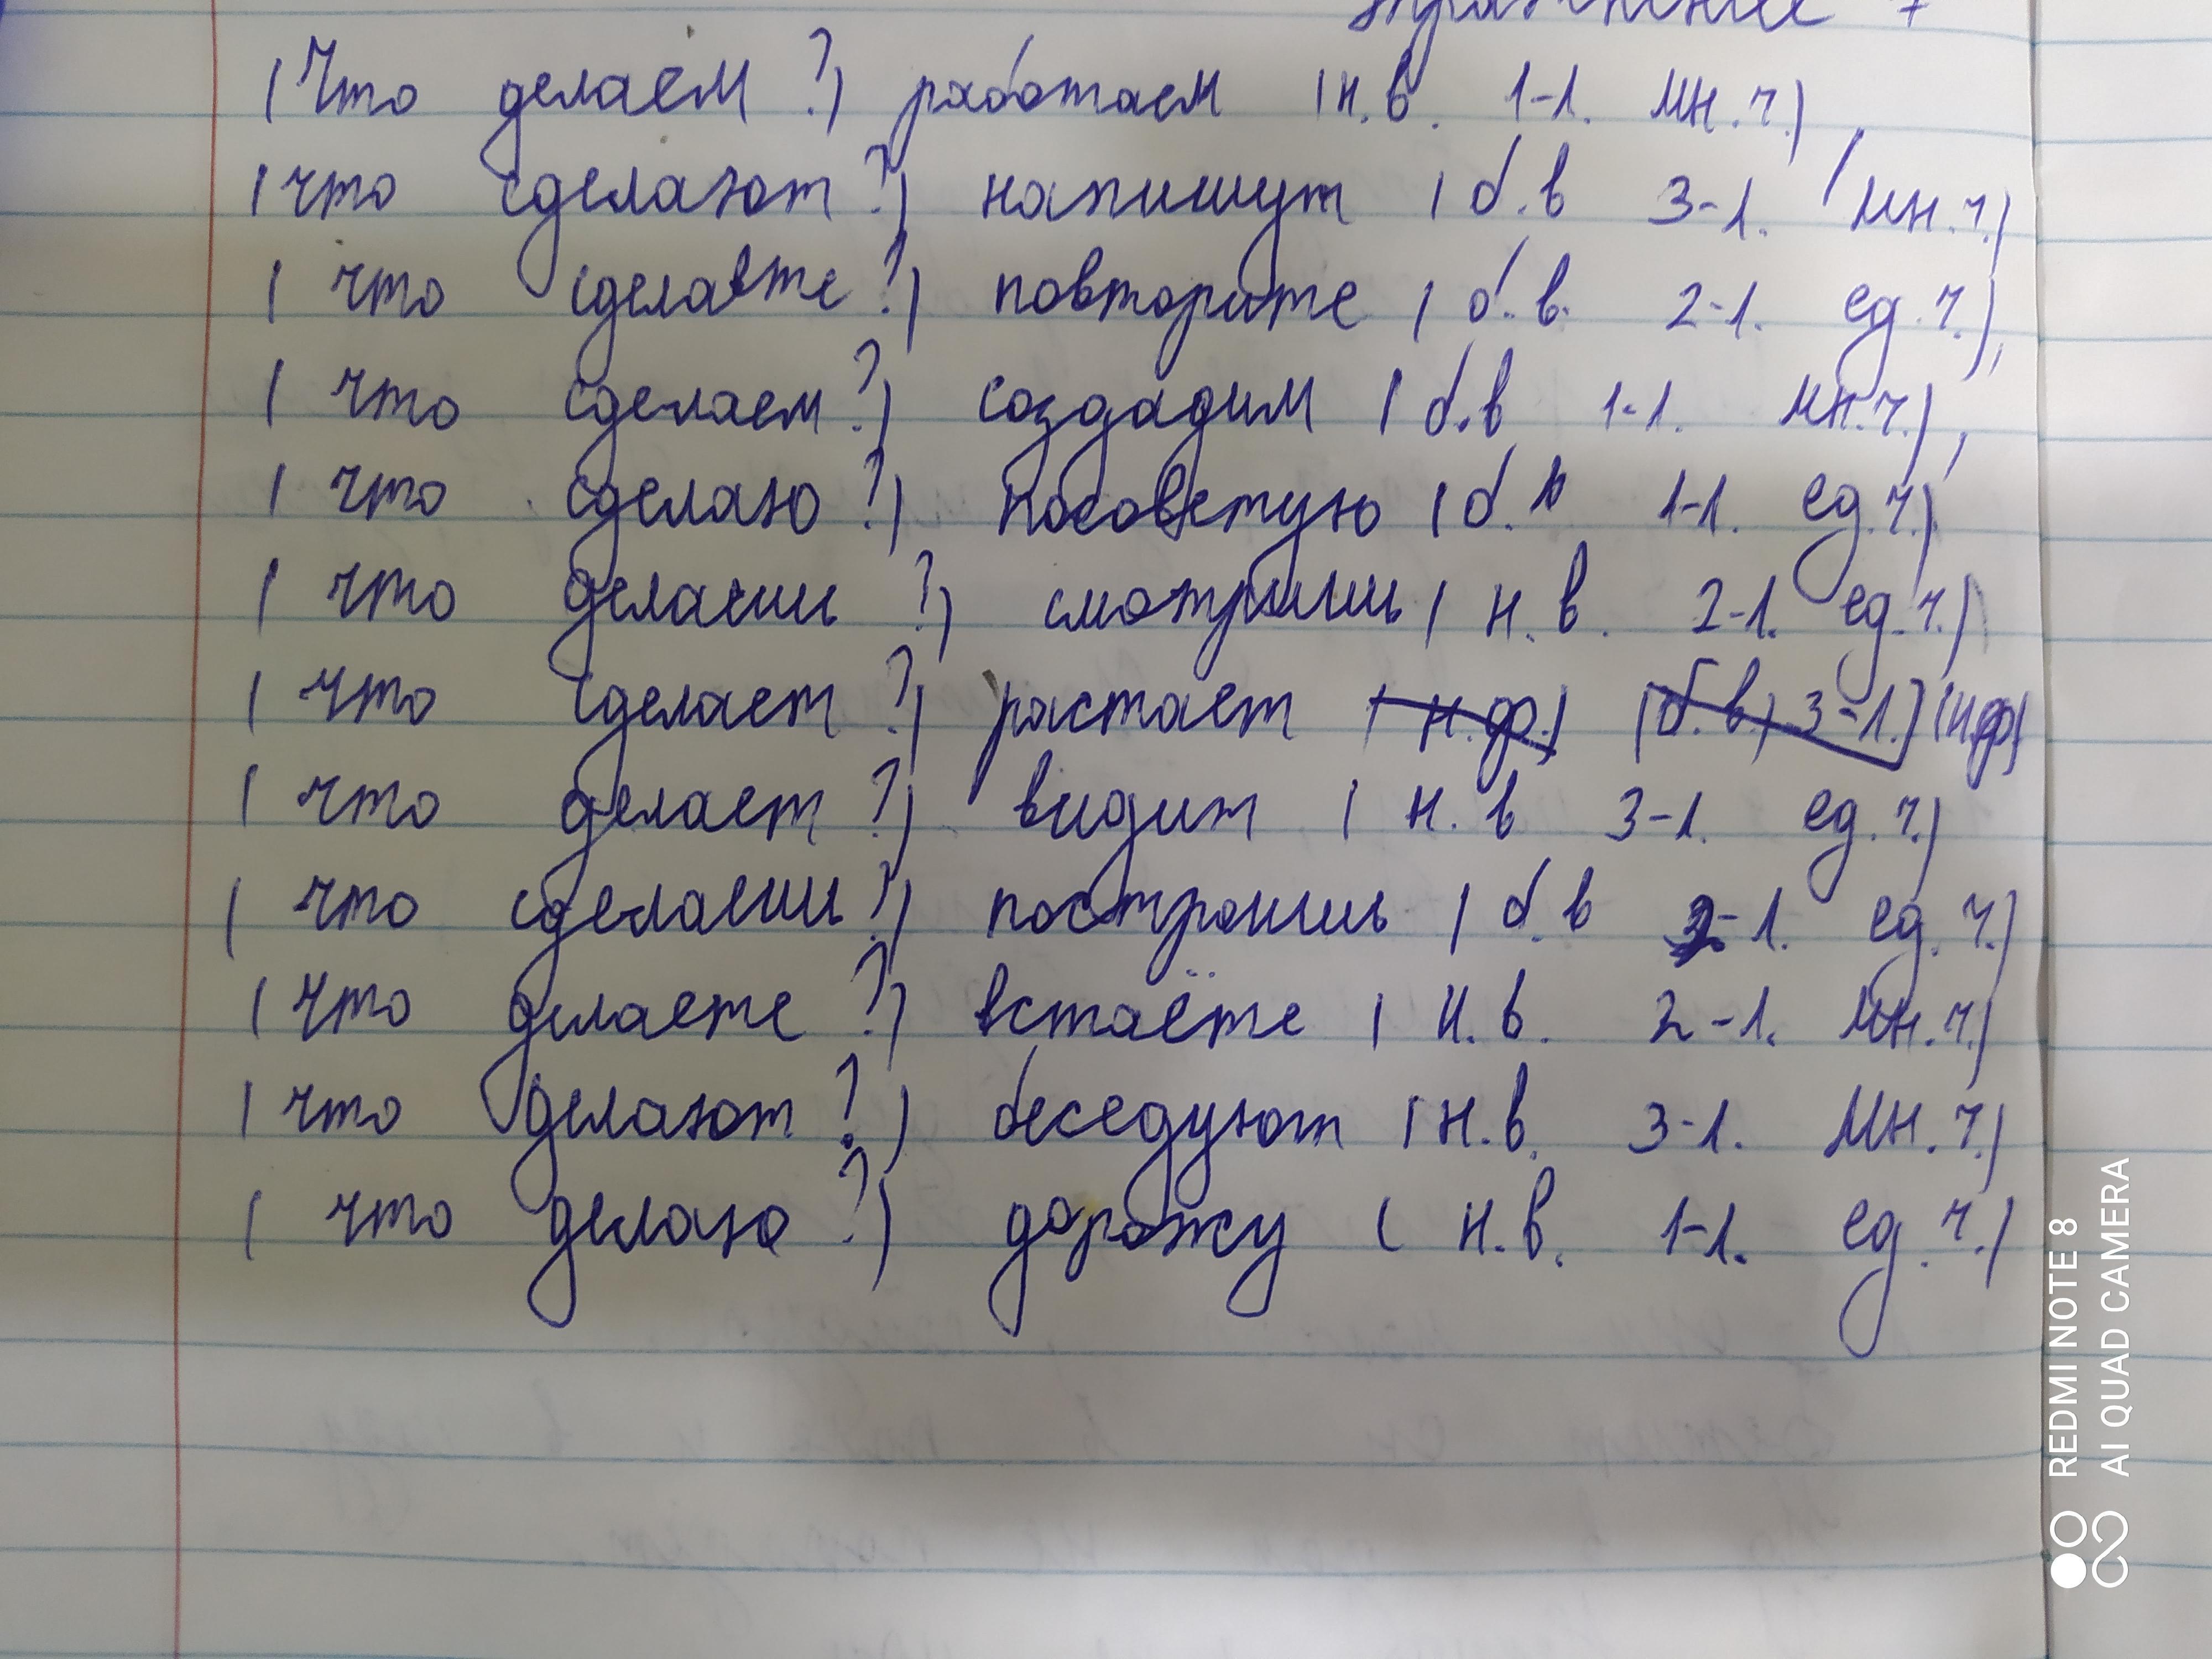 (Что делаем?) работаем (н.в. 1-л. мн.ч.),
(что сделают?) напишут (б.в 3-л. мн.ч.)
(что сделаете?) повторите (б.в. 2-л. ед.ч.),
(что сделаем?) создадим (б.в 1-л. мн.ч.),
(что сделаю?) посоветую (б.в 1-л. ед.ч.)
(что делаешь?) смотришь (н.в. 2-л. ед.ч.)
(что сделает?) растает (н.ф.) (б.в) 3-л.) (н.ф)
(что делает?) видит (н.в 3-л. ед.ч.)
(что сделаешь?) построишь (б.в 2-л. ед.ч.)
(что делаете?) встаёте (н.в. 2-л. мн.ч.)
(что делают?) беседуют (н.в. 3-л. мн.ч.)
(что делаю?) дорожу (н.в. 1-л. ед.ч.)
REDMI NOTE 8
AI QUAD CAMERA